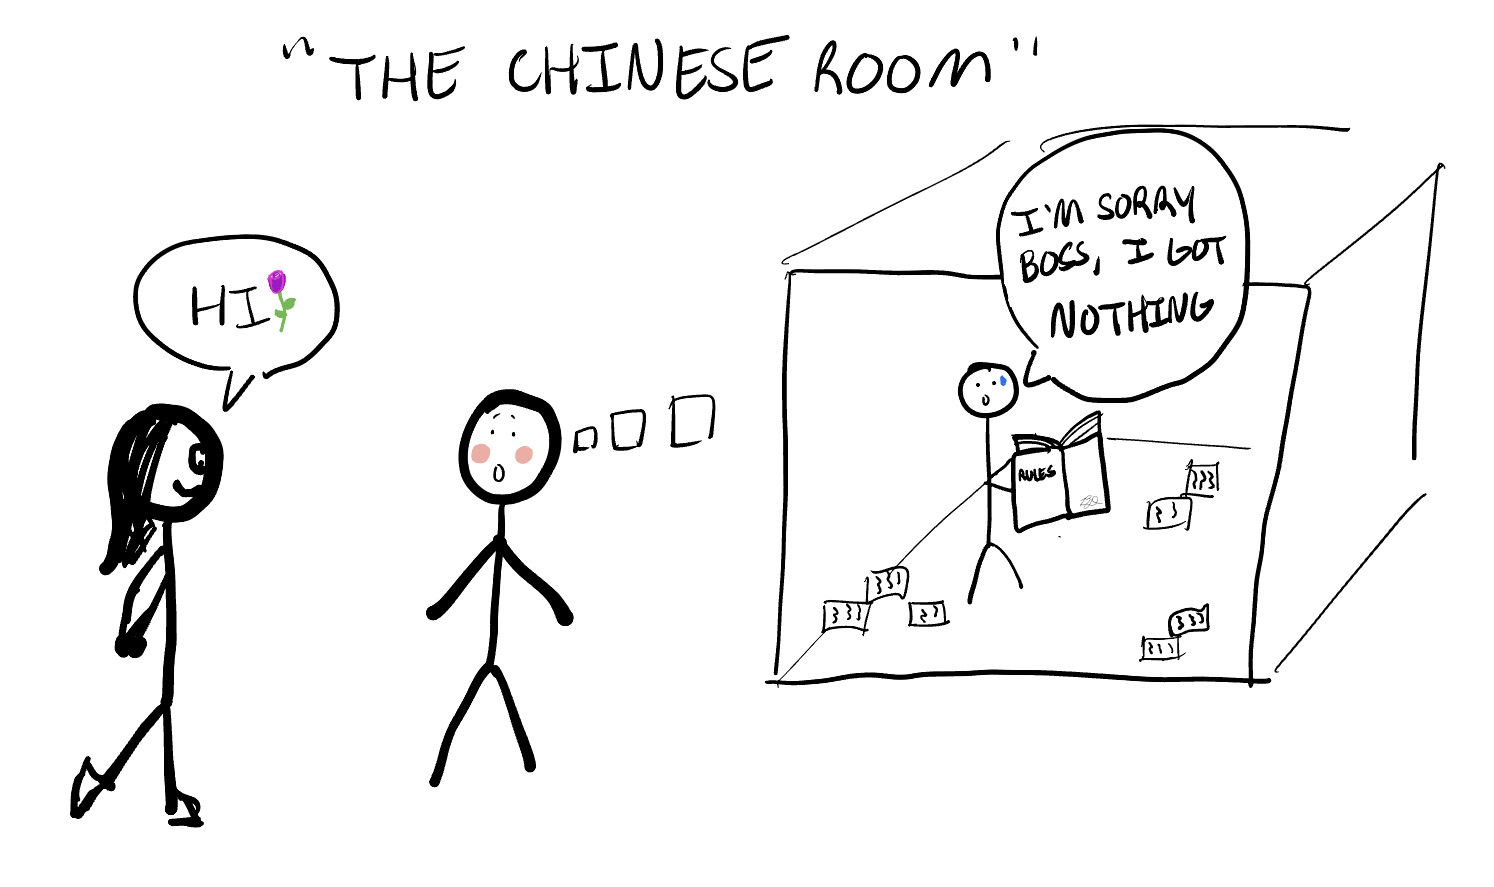 "THE CHINESE ROOM"
HI
I'M SORRY
BOSS, I GOT
NOTHING
RULES